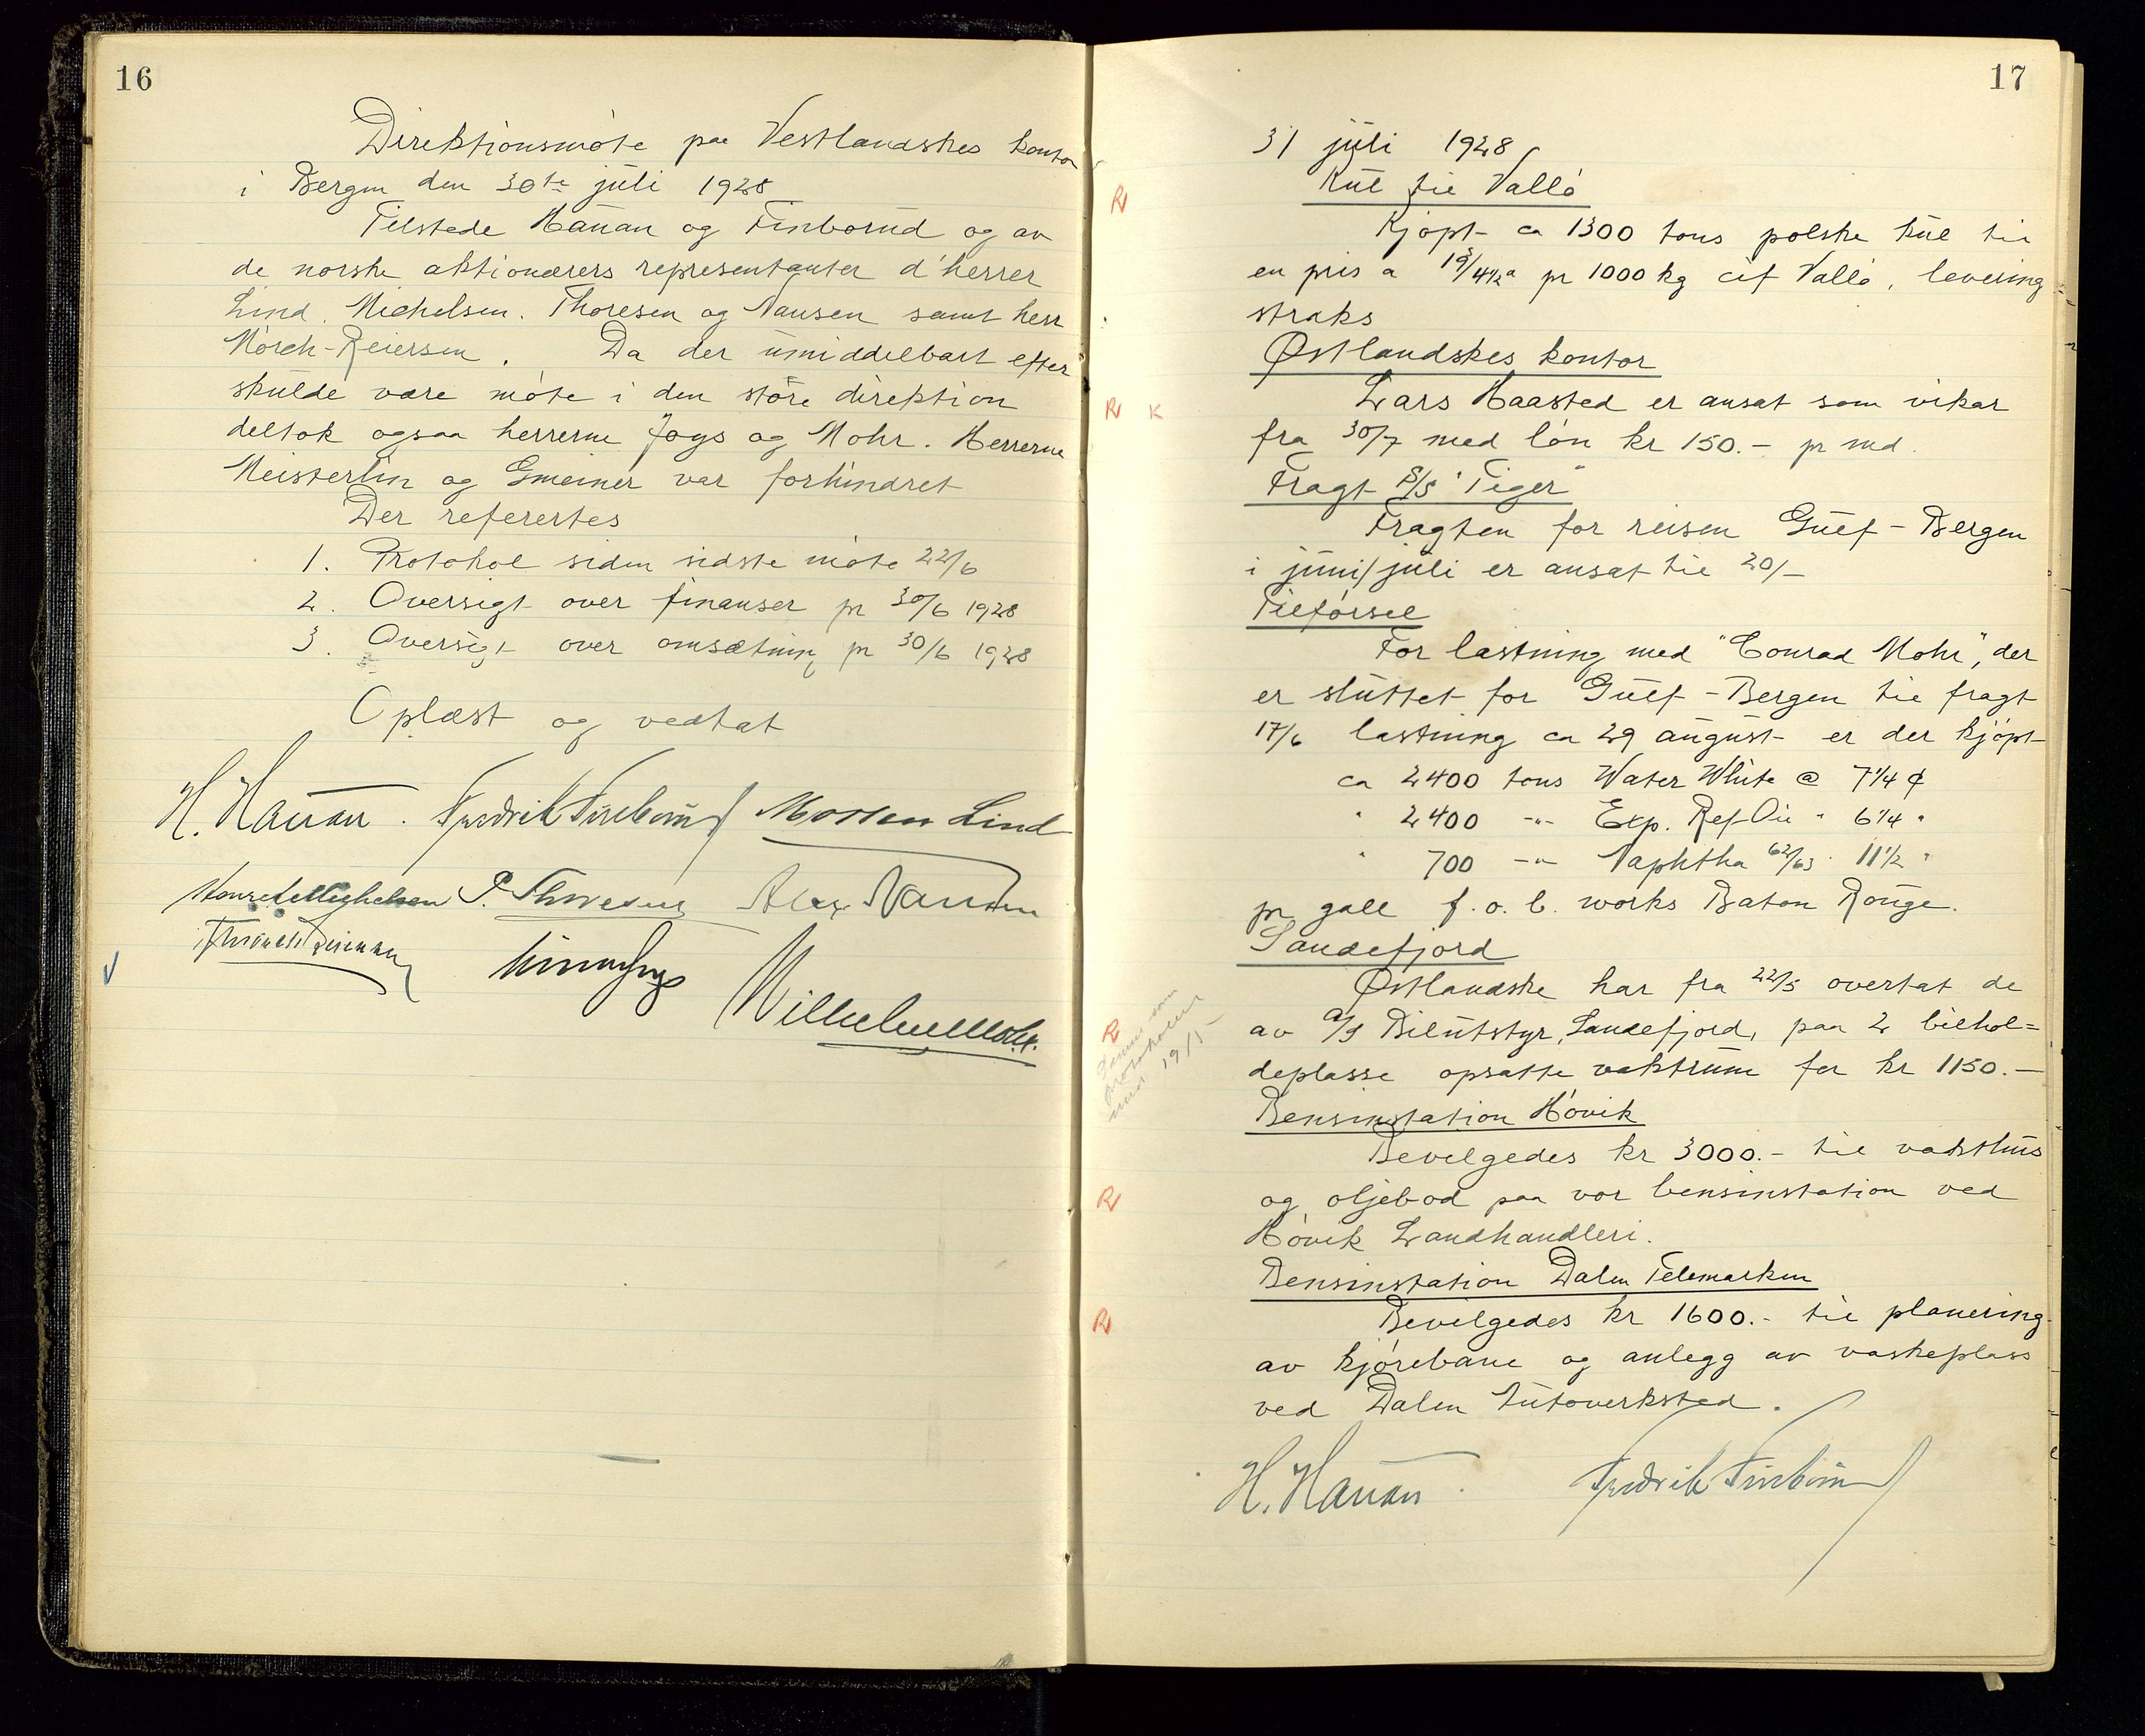 16
Direktionsmøte paa Vestlandskes kontor
i Bergen den 30te juli 1928
Tilstede Hauan og Finborud og av
de norske aktionærers representanter d'herrer
Lind, Michelsen, Thoresen og Nansen samt herr
Mörch-Reiersen. Da der umiddelbart efter
skulde være møte i den store direktion
deltok ogsaa herrerne Joys og Mohr. Herrerne
Meisterlin og Gmeiner var forhindret
Der refertes
1. Protokol siden sidste møte 22/6
2. Oversigt over finanser pr 30/6 1928
3. Oversigt over omsætning pr 30/6 1928
Oplæst og vedtat
H. Hauan. Fredrik Finborud Morten Lind
P. Thoresen Alex Nansen
Wilhelm Mohr.
17
31 juli 1928
Kul til Vallö
R
Kjøpt ca 1300 tons polske kul til
en pris a pr 1000 kg cif Vallö, levering
straks
Østlandskes kontor
R K
Lars Haasted er ansat som vikar
fra 30/7 med løn kr 150.- pr md.
Fragt S/S "Tiger"
Fragten for reisen Gulf - Bergen
i juni/juli er ansat til 20/-
Tilførsel
For lastning med "Conrad Mohr", der
er sluttet for Gulf - Bergen til fragt
17/6 lastning ca 29 august er der kjøpt
ca 2400 tons Water White @ 7 1/4 ¢
" 2400 -"- Exp. Ref Oil " 6 1/4 "
" 700 -"- Naphtha 62/63 " 11 1/2 "
pr gall f.o.b. works Baton Rouge.
Sandefjord
Østlandske har fra 22/5 overtat de
R
av A/S Bilutstyr, Sandefjord, paa 2 bilhol=
deplasse opsatte vaktrum for kr 1150.-
19/5
Bensinstation Høvik
Bevilgedes kr 3000.- til vakthus
R
og oljebod paa vor bensinstation ved
Høvik Landhandleri.
Bensinstation Dalen Telemarken
R
Bevilgedes kr 1600.- til planering
av kjørebane og anlegg av vaskeplass
ved Dalen Autoverksted.
H. Hauan. Fredrik Finborud